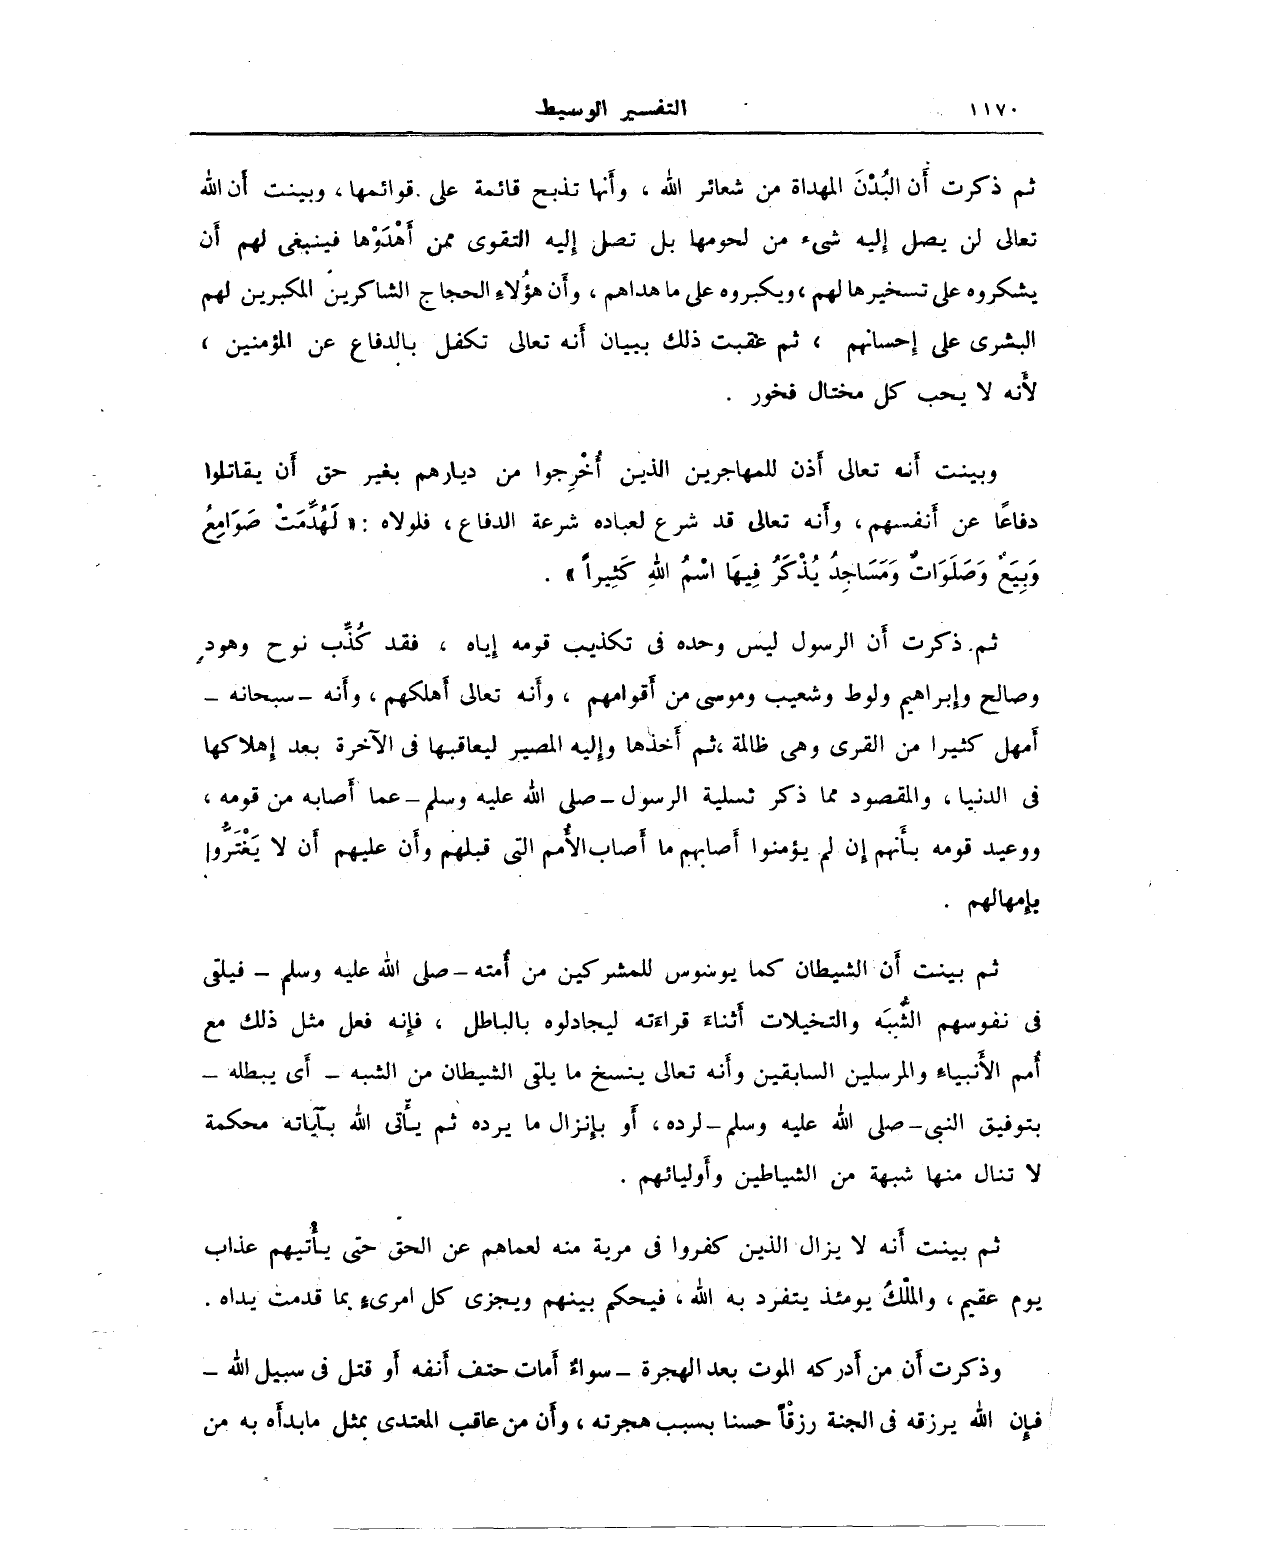 ١١٧٠ التفسير الوسيط
ثم ذكرت أَن البُدْنَ المهداة من شعائر الله ، وأَنها تذبح قائمة على قوائمها ، وبينت أَن الله
تعالى لن يصل إليه شىء من لحومها بل تصل إليه التقوى ممن أَهْدَوْها فينبغى لهم أَن
يشكروه على تسخيرها لهم ، ويكبروه على ما هداهم ، وأَن هؤُلاءِ الحجاج الشاكرين المكبرين لهم
البشرى على إحسانهم ، ثم عقبت ذلك ببيان أَنه تعالى تكفل بالدفاع عن المؤمنين ،
لأَنه لا يحب كل مختال فخور .
وبينت أَنه تعالى أَذن للمهاجرين الذين أُخْرِجوا من ديارهم بغير حق أَن يقاتلوا
دفاعًا عن أَنفسهم ، وأَنه تعالى قد شرع لعباده شرعة الدفاع ، فلولاه : « لَهُدِّمَتْ صَوَامِعُ
وَبِيَعٌ وَصَلَوَاتٌ وَمَسَاجِدُ يُذْكَرُ فِيهَا اسْمُ اللهِ كَثِيراً » .
ثم ذكرت أَن الرسول ليس وحده فى تكذيب قومه إياه ، فقد كُذِّب نوح وهود
وصالح وإبراهيم ولوط وشعيب وموسى من أَقوامهم ، وأَنه تعالى أَهلكهم ، وأَنه – سبحانه –
أَمهل كثيرا من القرى وهى ظالمة ، ثم أَخذها وإليه المصير ليعاقبها فى الآخرة بعد إهلاكها
فى الدنيا ، والمقصود مما ذكر تسلية الرسول – صلى الله عليه وسلم – عما أَصابه من قومه ،
ووعيد قومه بأَنهم إن لم يؤمنوا أَصابهم ما أَصاب الأُمم التى قبلهم وأَن عليهم أَن لا يَغْتَرُّوا
بإمهالهم .
ثم بينت أَن الشيطان كما يوسْوس للمشركين من أُمته – صلى الله عليه وسلم – فيلقى
فى نفوسهم الشُّبَه والتخيلات أَثناءَ قراءَته ليجادلوه بالباطل ، فإنه فعل مثل ذلك مع
أُمم الأَنبياءِ والمرسلين السابقين وأَنه تعالى ينسخ ما يلقى الشيطان من الشبه – أَى يبطله –
بتوفيق النبى – صلى الله عليه وسلم – لرده ، أَو بإنزال ما يرده ثم يأْتى الله بآياته محكمة
لا تنال منها شبهة من الشياطين وأَوليائهم .
ثم بينت أَنه لا يزال الذين كفروا فى مرية منه لعماهم عن الحق حتى يأْتيهم عذاب
يوم عقيم ، والمُلْكُ يومئذ يتفرد به الله ، فيحكم بينهم ويجزى كل امرىءٍ بما قدمت يداه .
وذكرت أَن من أَدركه الموت بعد الهجرة – سواءٌ أَمات حتف أَنفه أَو قتل فى سبيل الله –
فإن الله يرزقه فى الجنة رزقًا حسنا بسبب هجرته ، وأَن من عاقب المعتدى بمثل مابدأَه به من